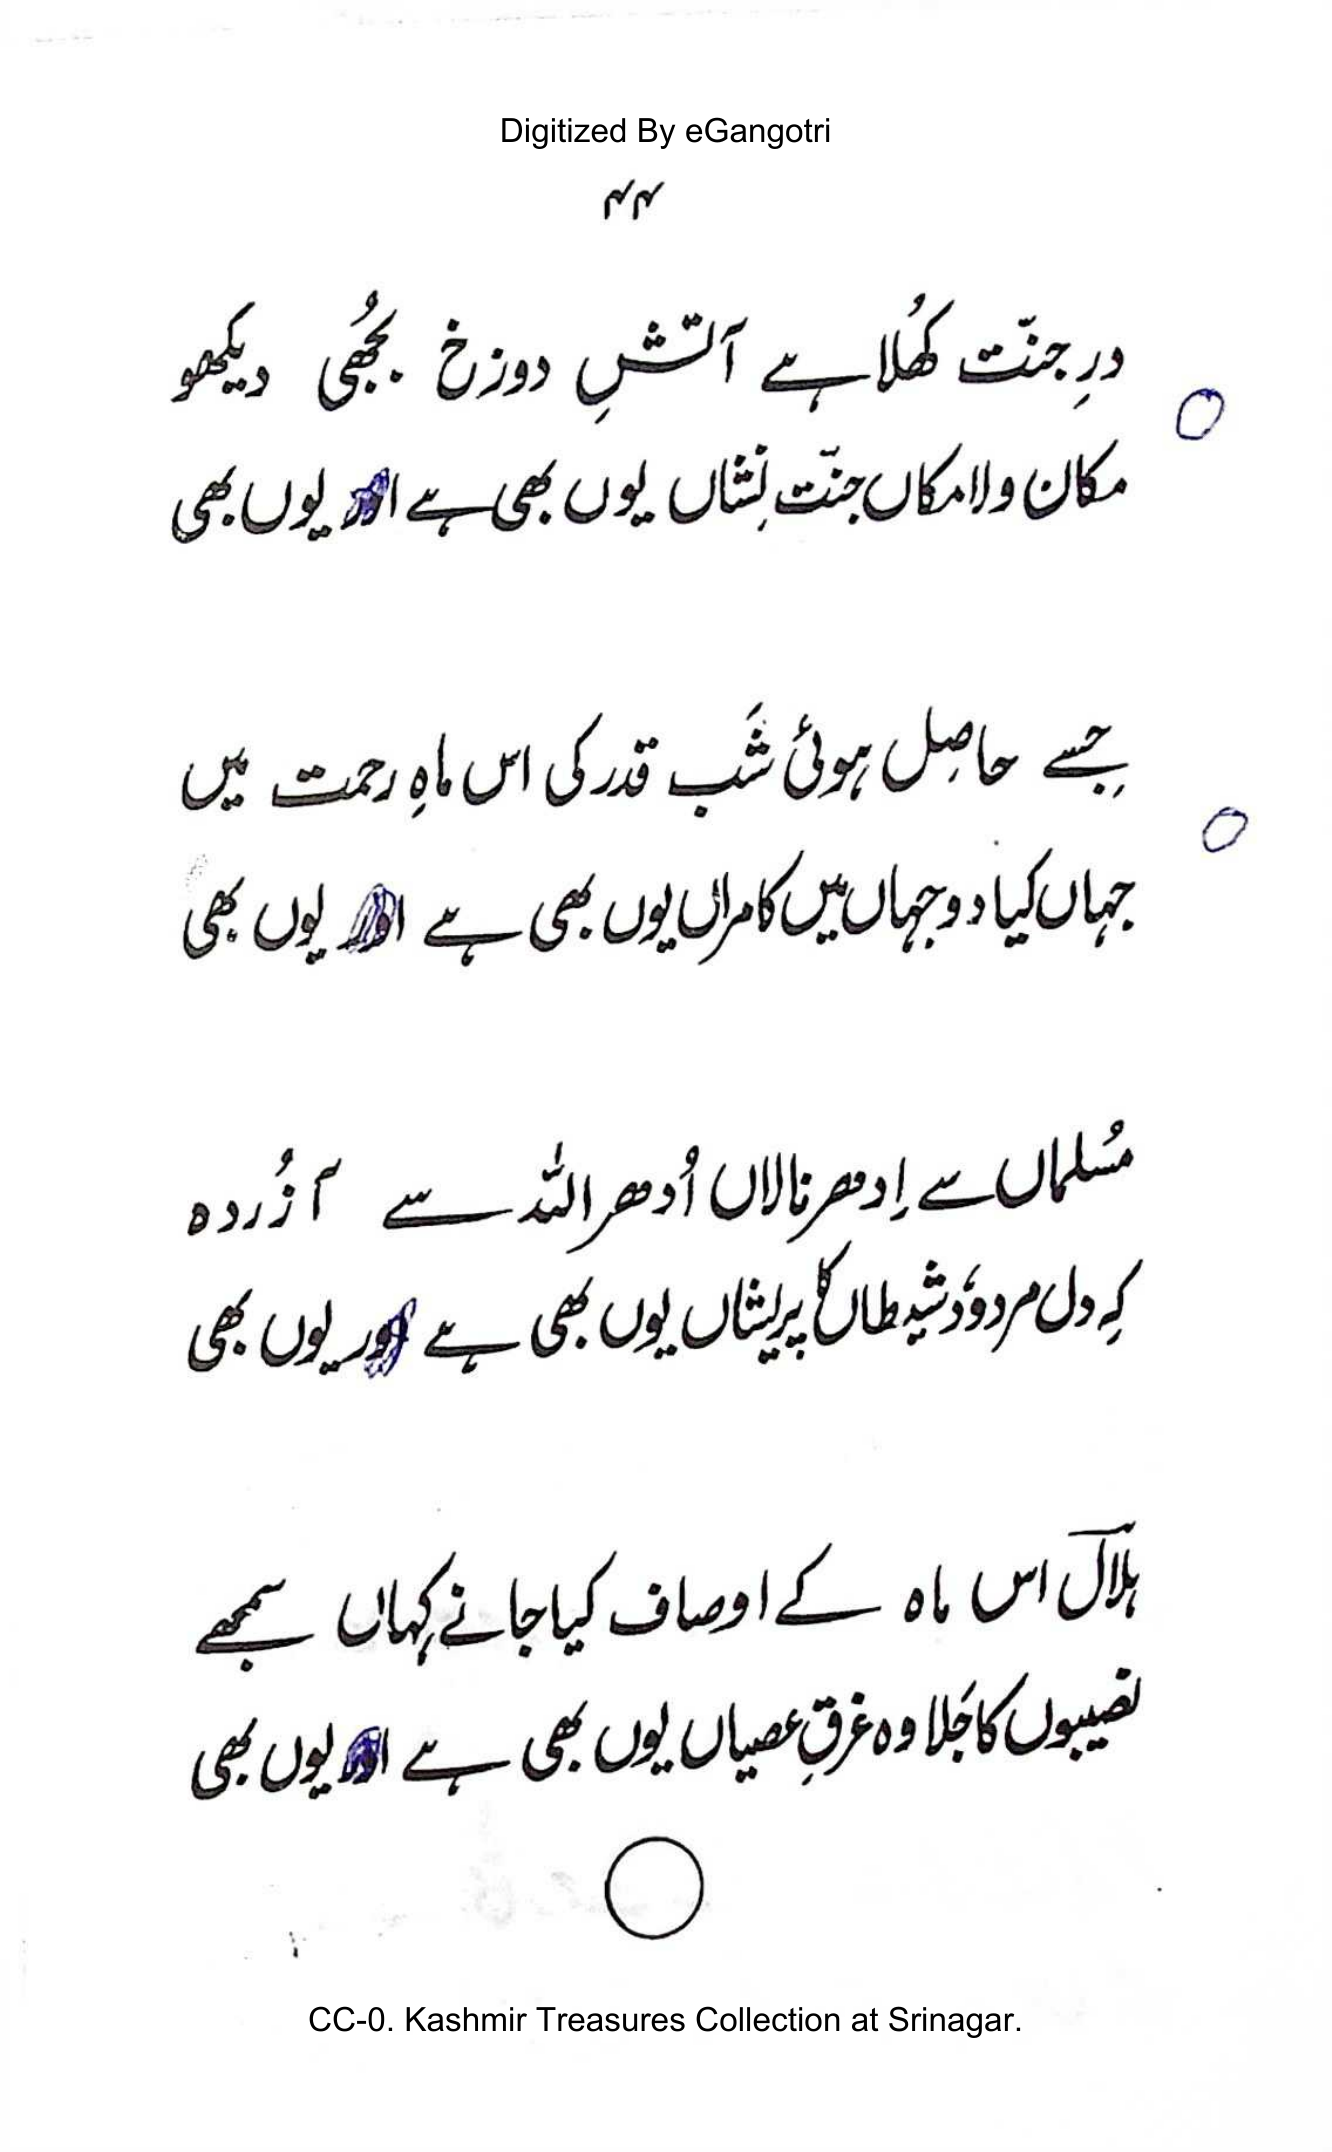 Digitized By eGangotri
۴۴
درِ جنّت کھُلا ہے آتشِ دوزخ بجھُی دیکھو
مکان و لامکاں جنّت نِشاں یوں بھی ہے اور یوں بھی
جِسے حاصِل ہوئی شَب قدر کی اس ماہِ رحمت میں
جہاں کیا دو جہاں میں کامراں یوں بھی ہے اور یوں بھی
مُسلماں سے اِدھر نالاں اُدھر اللہ سے آزُردہ
کِہ دل مردودِ شیطاں کا پریشاں یوں بھی ہے اور یوں بھی
ہلاؔل اس ماہ کے اوصاف کیا جانے کہاں سمجھے
نصیبوں کا جَلا وہ غرقِ عصیاں یوں بھی ہے اور یوں بھی
CC-0. Kashmir Treasures Collection at Srinagar.